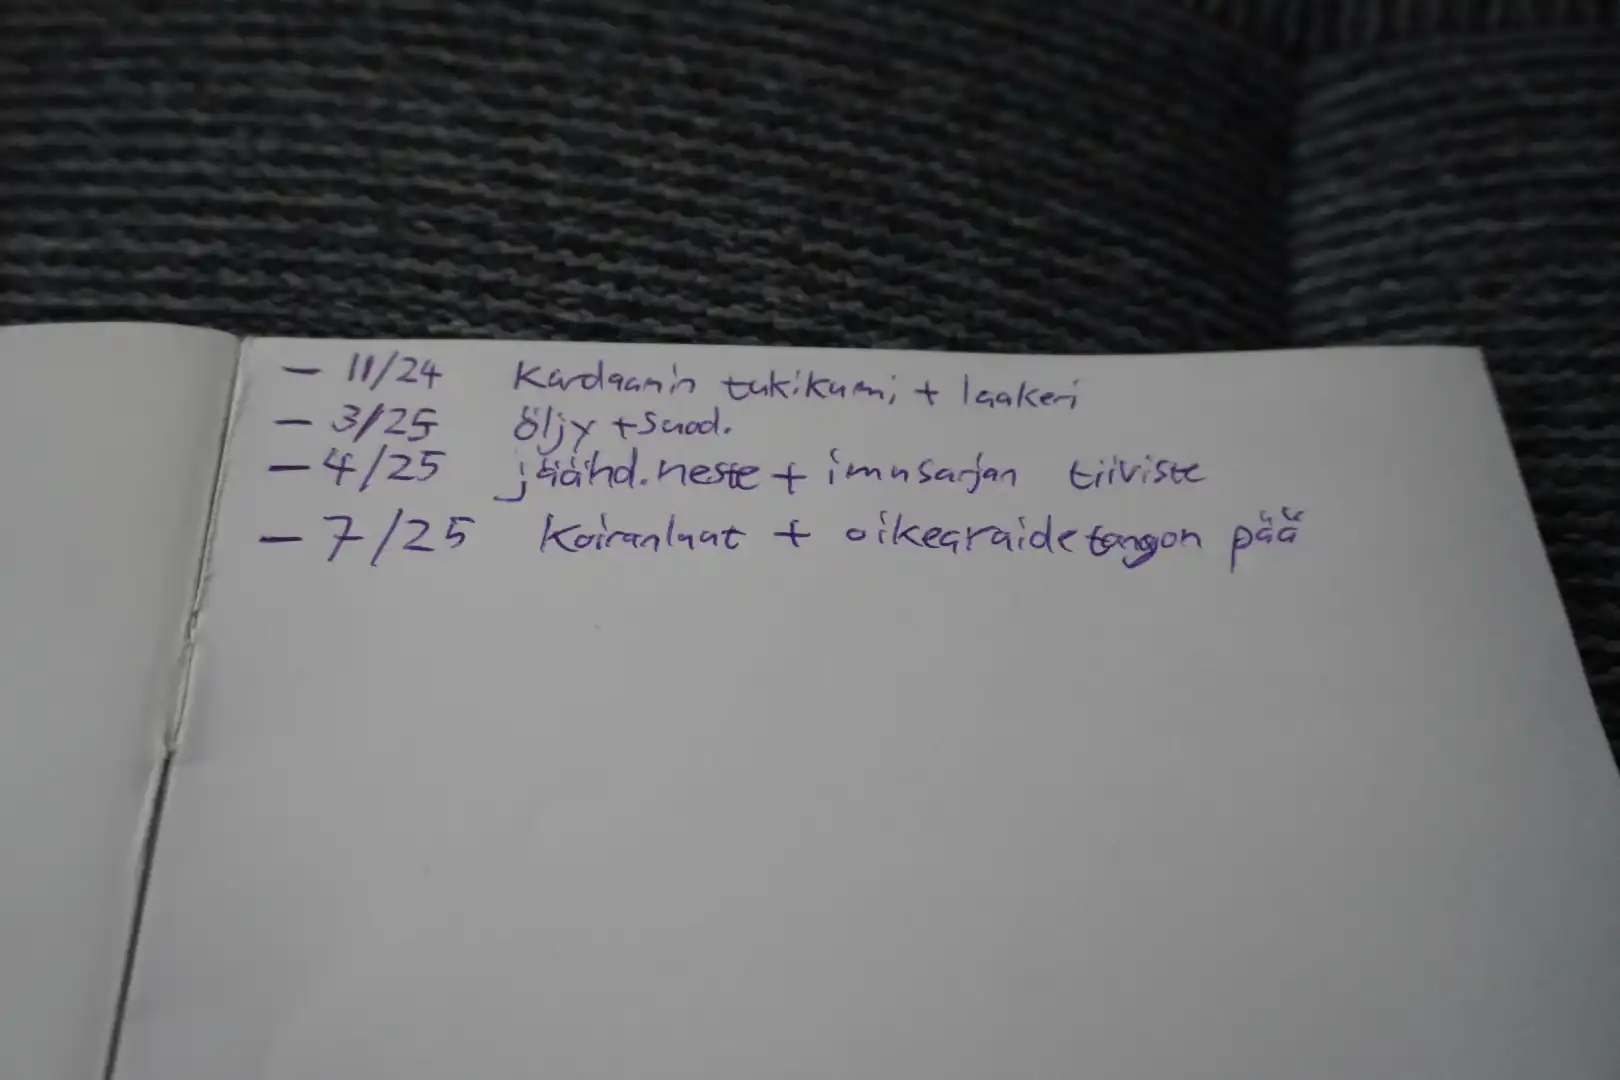 - 11/24 Kardaanin tukikumi + laakeri
- 3/25 öljy + suod.
- 4/25 jäähd.neste + imusarjan tiiviste
- 7/25 Koiranluut + oikea raidetangon pää